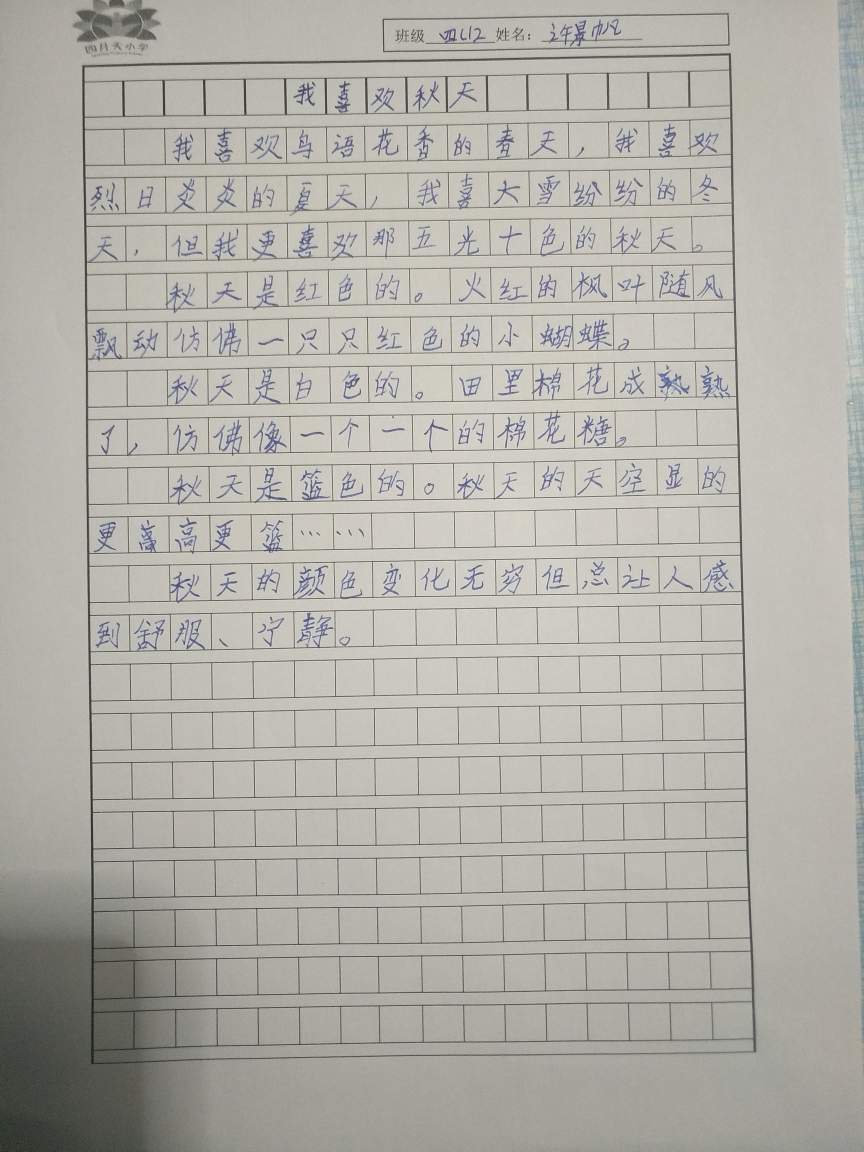 四月天小学
班级 四(12 姓名: 许景帆
我喜欢秋天
我喜欢鸟语花香的春天,我喜欢
烈日炎炎的夏天,我喜大雪纷纷的冬
天,但我更喜欢那五光十色的秋天。
秋天是红色的。火红的枫叶随风
飘动仿佛一只只红色的小蝴蝶。
秋天是白色的。田里棉花成熟熟
了,仿佛像一个一个的棉花糖。
秋天是篮色的。秋天的天空显的
更高高更篮……
秋天的颜色变化无穷但总让人感
到舒服、宁静。